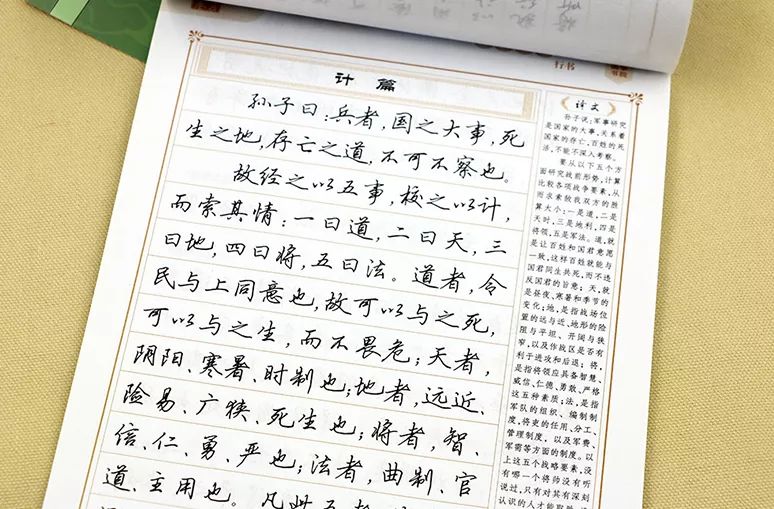 行书
计篇
孙子曰：兵者，国之大事，死
生之地，存亡之道，不可不察也。
故经之以五事，校之以计，
而索其情：一曰道，二曰天，三
曰地，四曰将，五曰法。道者，令
民与上同意也，故可以与之死，
可以与之生，而不畏危；天者，
阴阳、寒暑、时制也；地者，远近、
险易、广狭、死生也；将者，智、
信、仁、勇、严也；法者，曲制、官
道、主用也。凡此五者
译文
孙子说：军事研究
是国家的大事，关系着
国家的存亡，百姓的死
活，不能不深入考察。
要从以下五个方
面研究战前形势，计算
比较各项战争要素，从
而求索敌我双方的胜
算大小：一是道，二是
天时，三是地利，四是
将领，五是军法。道，就
是让百姓和国君意愿
一致，这样百姓就能与
国君同生共死，而不违
反国君的旨意；天，就
是昼夜、寒暑和季节的
变化；地，是指战场位
置的远与近、地形的险
阻与平坦、开阔与狭
窄，以及作战区是否有
利于进攻和后退；将，
是指将领应具备智慧、
威信、仁德、勇敢、严格
这五种素质；法，是指
军队的组织、编制制
度，将吏的任用、分工、
管理制度，以及军费、
军需等方面的制度。以
上这五个战略要素，没
有哪一个将帅没有听
说过，只有对其有深刻
认识的人才能取胜